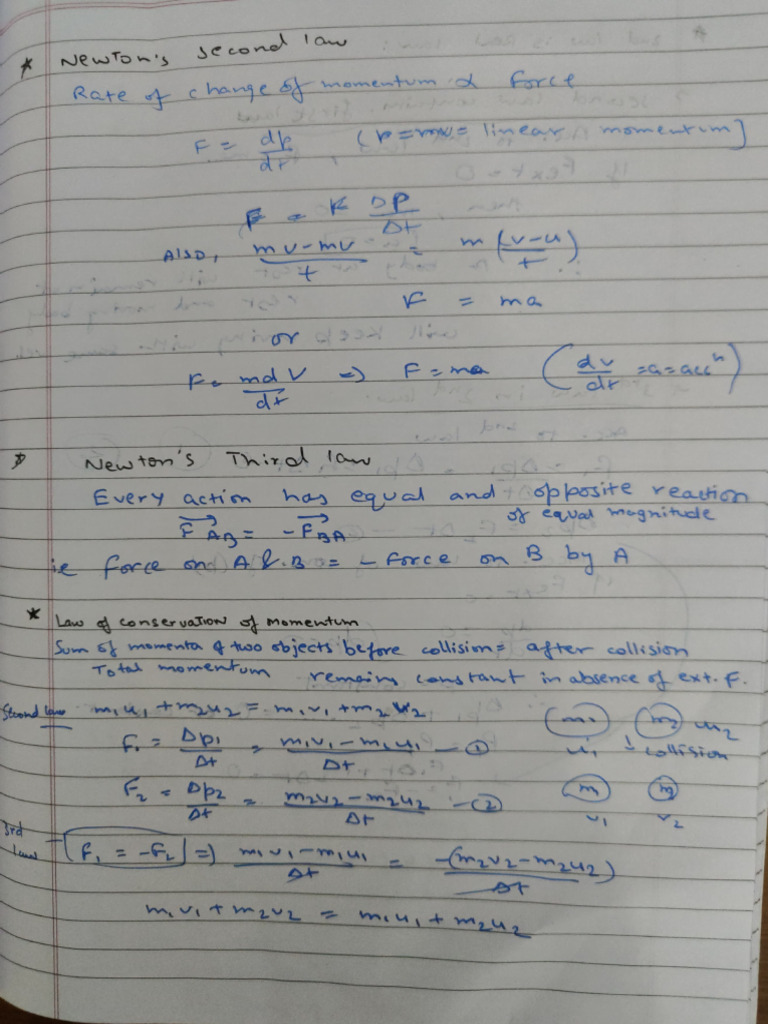 * Newton's second law
Rate of change of momentum ∝ force
F = dp/dt (p=mv= linear momentum]
F = K Δp/Δt
Also, mv-mv/t = m(v-u/t)
F = ma
or
F= mdv/dt => F=ma (dv/dt =a=accⁿ)
* Newton's Third law
Every action has equal and opposite reaction
of equal magnitude
F⃗AB = -F⃗BA
ie force on A & B = - force on B by A
* Law of conservation of momentum
Sum of momenta of two objects before collision = after collision
Total momentum remains constant in absence of ext. F.
Second law m₁u₁ + m₂u₂ = m₁v₁ + m₂v₂ m₁ m₂ u₂
u₁ collision
F₁ = Δp₁/Δt = m₁v₁ - m₁u₁/Δt - ①
F₂ = Δp₂/Δt = m₂v₂ - m₂u₂/Δt - ② m m
v₁ v₂
3rd law F₁ = -F₂ => m₁v₁ - m₁u₁/Δt = -(m₂v₂ - m₂u₂)/Δt
m₁v₁ + m₂v₂ = m₁u₁ + m₂u₂